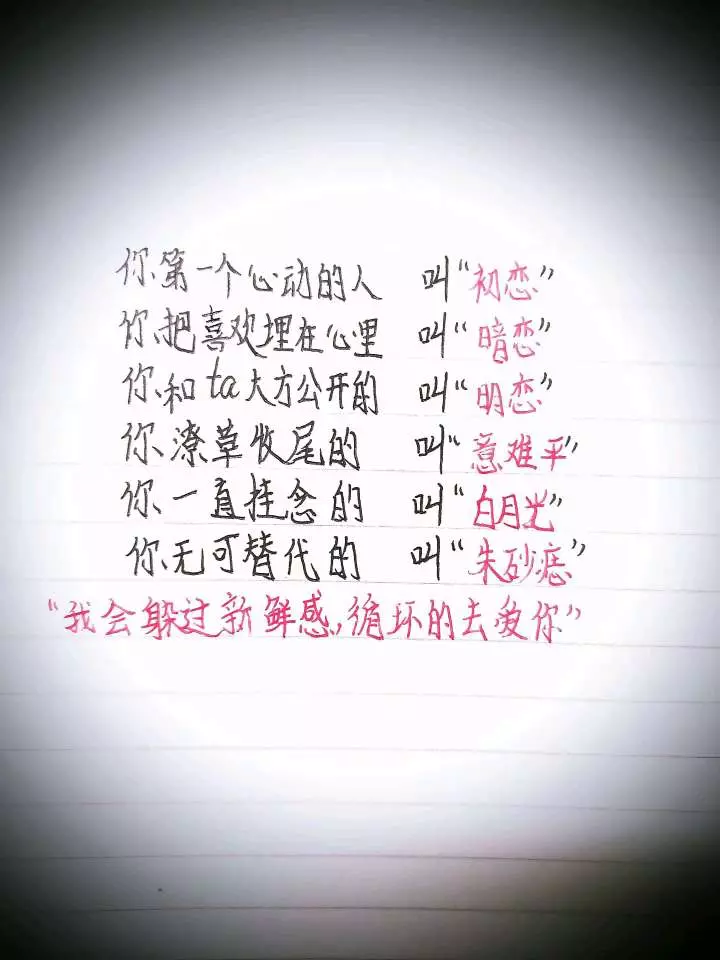 你第一个心动的人 叫“初恋”
你把喜欢埋在心里 叫“暗恋”
你和ta大方公开的 叫“明恋”
你潦草收尾的 叫“意难平”
你一直挂念的 叫“白月光”
你无可替代的 叫“朱砂痣”
“我会躲过新鲜感,循环的去爱你”